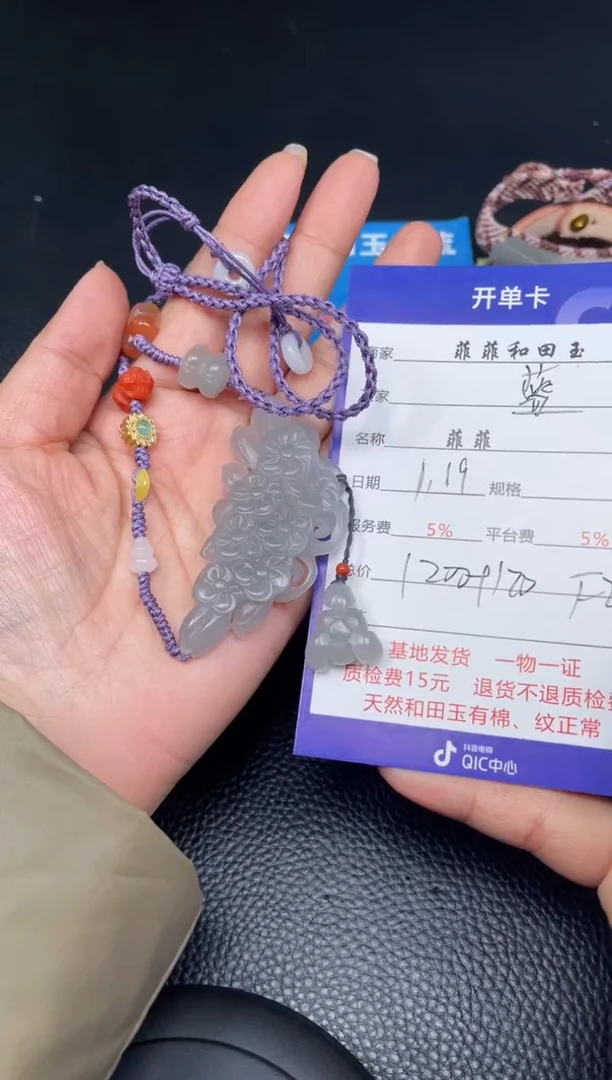 玉
开单卡
商家 菲菲和田玉
家 蓝
名称 菲菲
日期 1,19 规格
服务费 5% 平台费 5%
总价 1200+100
基地发货 一物一证
质检费15元 退货不退质检费
天然和田玉有棉、纹正常
抖音电商
QIC中心